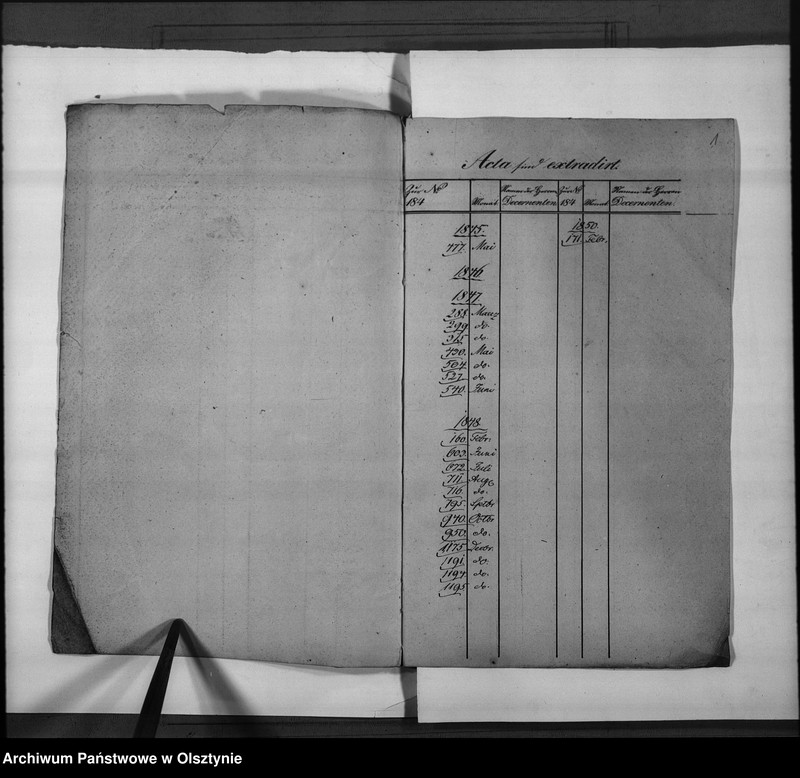 1
Acta sind extradirt.
Zur No 184 Monat Namen der Herren Decernenten Zur No 184 Monat Namen der Herren Decernenten.
1845. 1850.
777. Mai 171. Febr.
1846
1847
288 Maerz
299 do.
365 do.
430. Mai
504. do.
527. do.
540. Juni
1848.
160. Febr.
603. Juni
672. Juli
711. Aug.
716. do.
795. Septbr
940. Octbr
950. do.
1175. Decbr.
1191. do.
1194. do.
1195 do.
Archiwum Państwowe w Olsztynie